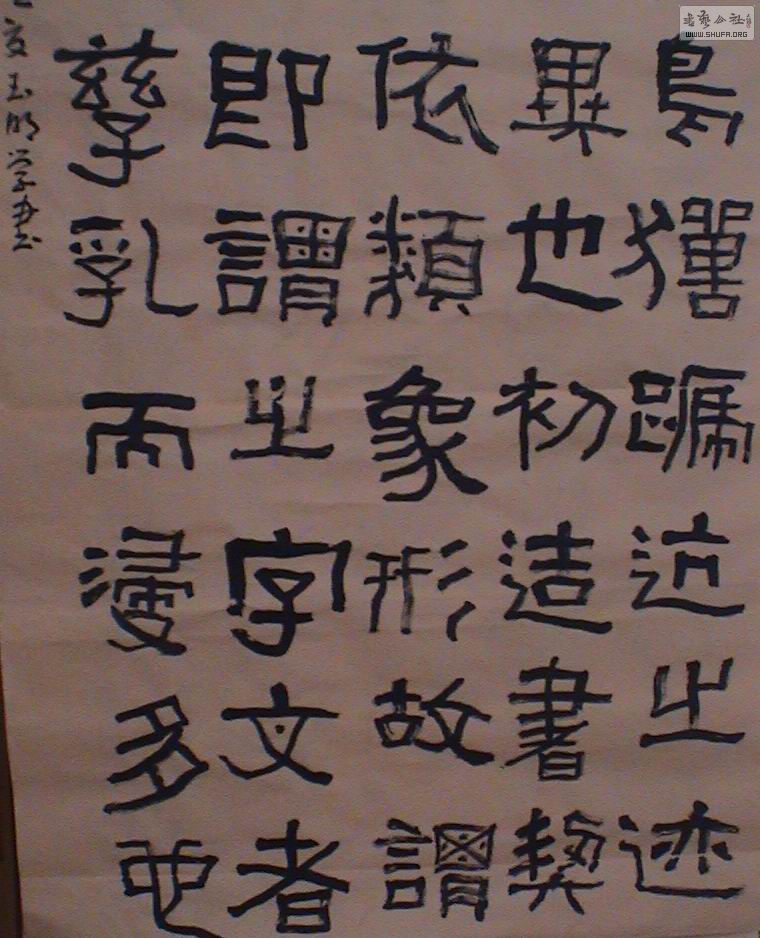 鳥獸蹏迒之迹
異也初造書契
依類象形故謂
即謂之字文者
孳乳而浸多也
亥玉明学書
書藝公社
WWW.SHUFA.ORG